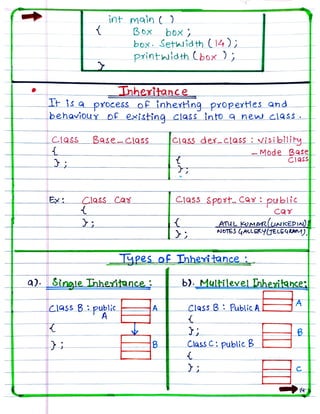 int main ( )
{ Box box;
box. Setwidth (14);
printwidth (box);
}
Inheritance
It is a process of inheriting properties and
behaviour of existing class into a new class.
Class Base_class
{
};
Class der_class : visibility
- Mode Base
Class
{
};
Ex: Class Car
{
};
Class sport_Car : public
Car
{ ATUL KUMAR (LINKEDIN)
}; NOTES GALLERY (TELEGRAM)
Types of Inheritance :
a). Single Inheritance :
Class B : public
A
{
};
A
B
b). Multilevel Inheritance:
Class B : Public A
{
};
Class C : public B
{
};
A
B
C